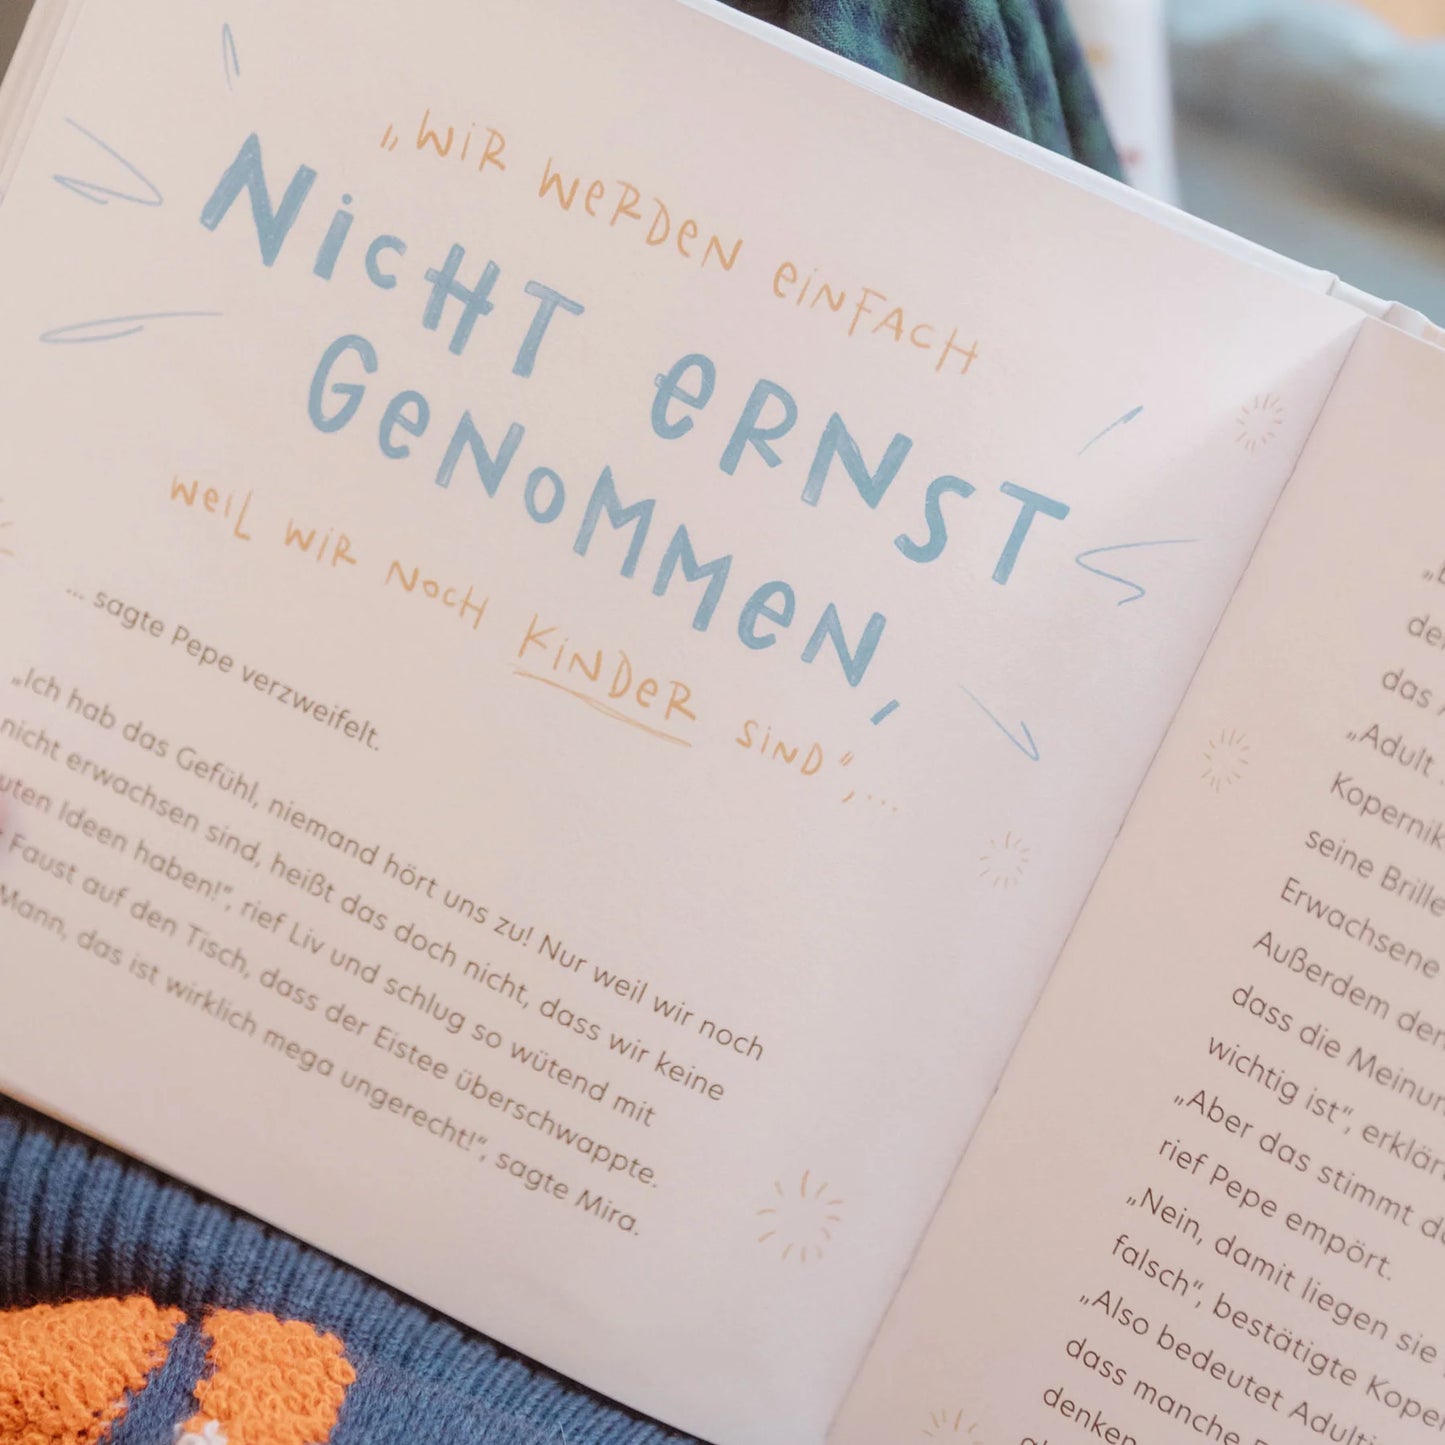 „WIR WERDEN EINFACH
NICHT ERNST
GENOMMEN,
WEIL WIR NOCH KINDER SIND“,...
... sagte Pepe verzweifelt.
„Ich hab das Gefühl, niemand hört uns zu! Nur weil wir noch
nicht erwachsen sind, heißt das doch nicht, dass wir keine
Ideen haben!“, rief Liv und schlug so wütend mit
Faust auf den Tisch, dass der Eistee überschwappte.
Mann, das ist wirklich mega ungerecht!“, sagte Mira.
das
„Adult
seine Brille
Erwachsene
Außerdem
dass die
wichtig ist“,
„Aber das stimmt
rief Pepe empört.
„Nein, damit liegen sie
falsch“, bestätigte
„Also bedeutet
dass manche
denken